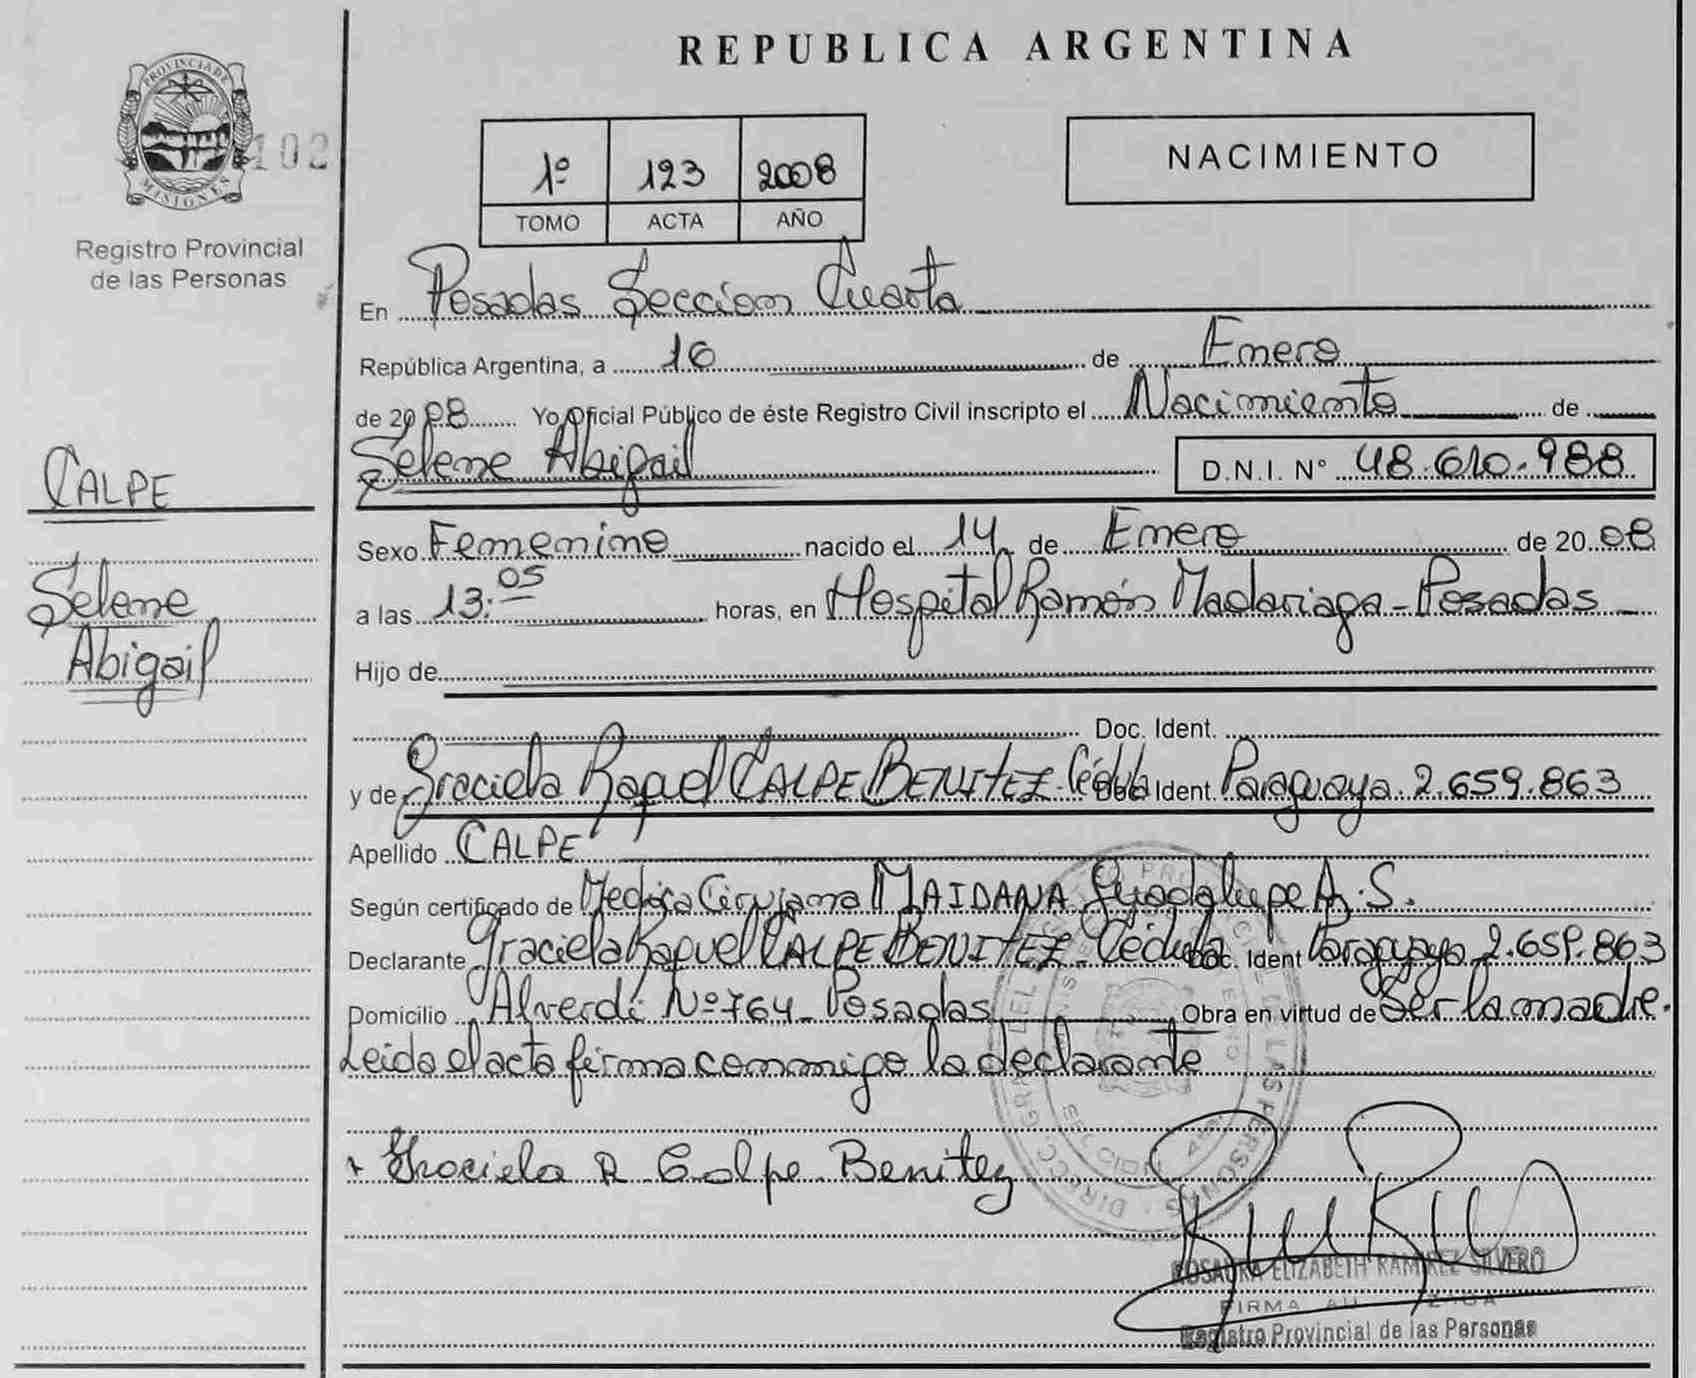 REPUBLICA ARGENTINA
PROVINCIA DE
MISIONES
102
Registro Provincial
de las Personas
1º 123 2008
TOMO ACTA AÑO
NACIMIENTO
En Posadas Seccion Cuarta
República Argentina, a 16 de Enero
de 2008 Yo Oficial Público de éste Registro Civil inscripto el Nacimiento de
Selene Abigail D.N.I. Nº 48.610.988
CALPE
Selene
Abigail
Sexo Femenino nacido el 14 de Enero de 2008
a las 13:05 horas, en Hospital Ramón Madariaga - Posadas
Hijo de
Doc. Ident.
y de Graciela Raquel CALPE BENITEZ - Cédula Doc. Ident. Paraguaya 2.659.863
Apellido CALPE
Según certificado de Medica Cirujana MAIDANA Guadalupe A. S.
Declarante Graciela Raquel CALPE BENITEZ - Cédula Doc. Ident Paraguaya 2.659.863
Domicilio Alverdi Nº 764 - Posadas Obra en virtud de Ser la madre.
Leida el acta firma conmigo la declarante
Graciela R Calpe Benitez
ROSAURA ELIZABETH RAMIREZ SILVERO
FIRMA
Registro Provincial de las Personas